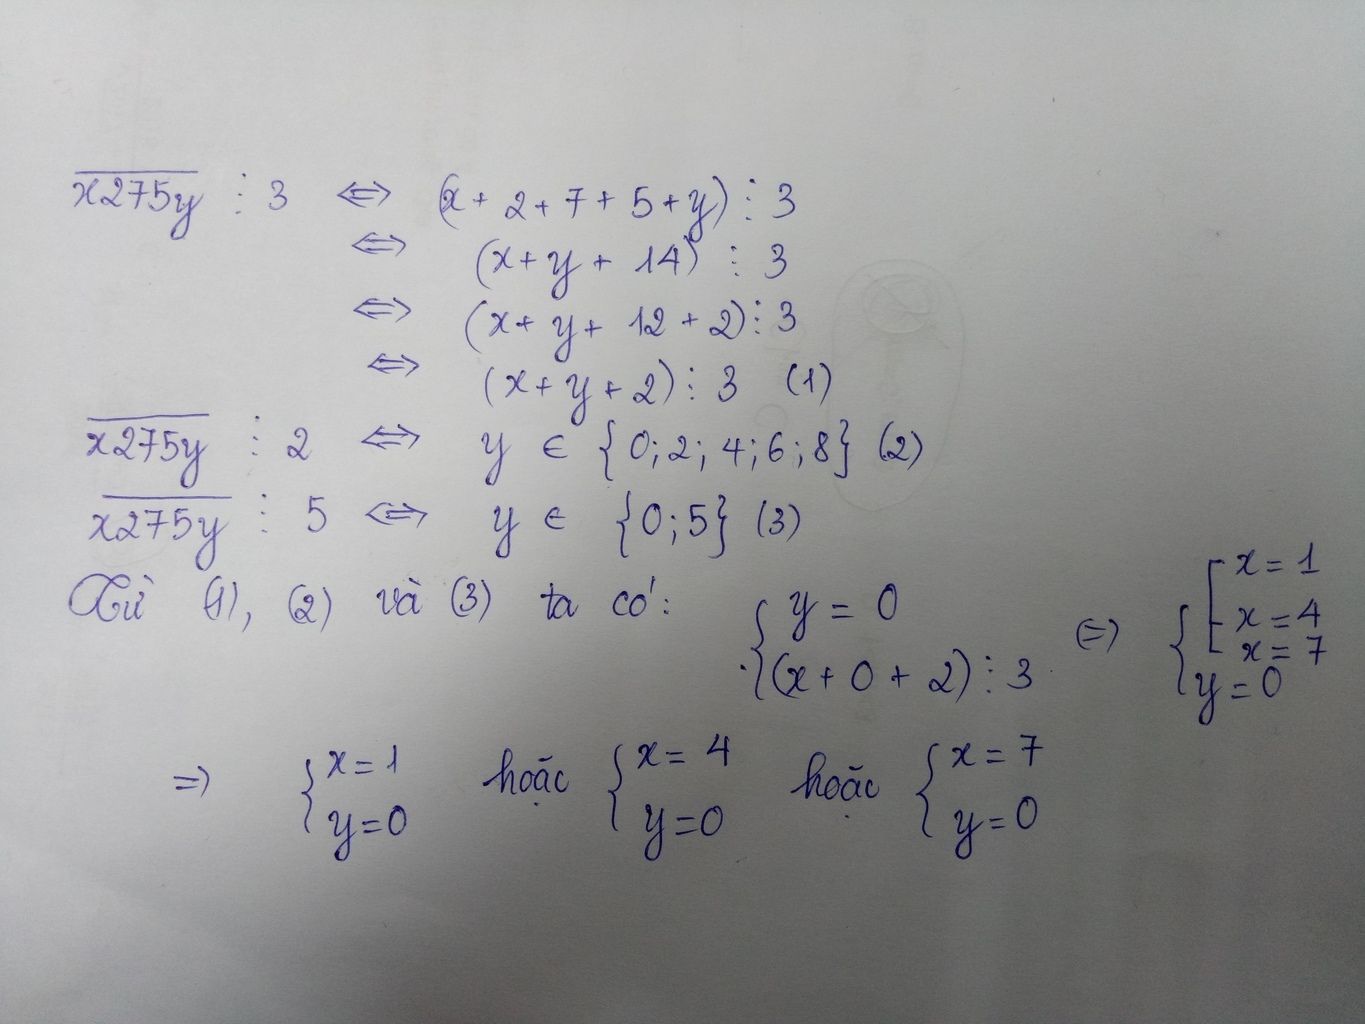 x275y ⋮ 3 ⇔ (x + 2 + 7 + 5 + y) ⋮ 3
⇔ (x + y + 14) ⋮ 3
⇔ (x + y + 12 + 2) ⋮ 3
⇔ (x + y + 2) ⋮ 3 (1)
x275y ⋮ 2 ⇔ y ∈ {0; 2; 4; 6; 8} (2)
x275y ⋮ 5 ⇔ y ∈ {0; 5} (3)
Từ (1), (2) và (3) ta có: { y = 0 ; (x + 0 + 2) ⋮ 3 ⇔ { [ x = 1 ; x = 4 ; x = 7 ; y = 0
⇒ { x = 1 ; y = 0 hoặc { x = 4 ; y = 0 hoặc { x = 7 ; y = 0